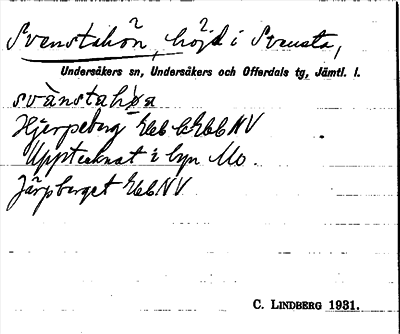 Svenstahön, höjd i Svensta,
Undersåkers sn, Undersåkers och Offerdals tg, Jämtl. l.
svànstahøn
Hjerpeberg
Upptecknat i byn Mo.
Järpberget NV
C. LINDBERG 1931.